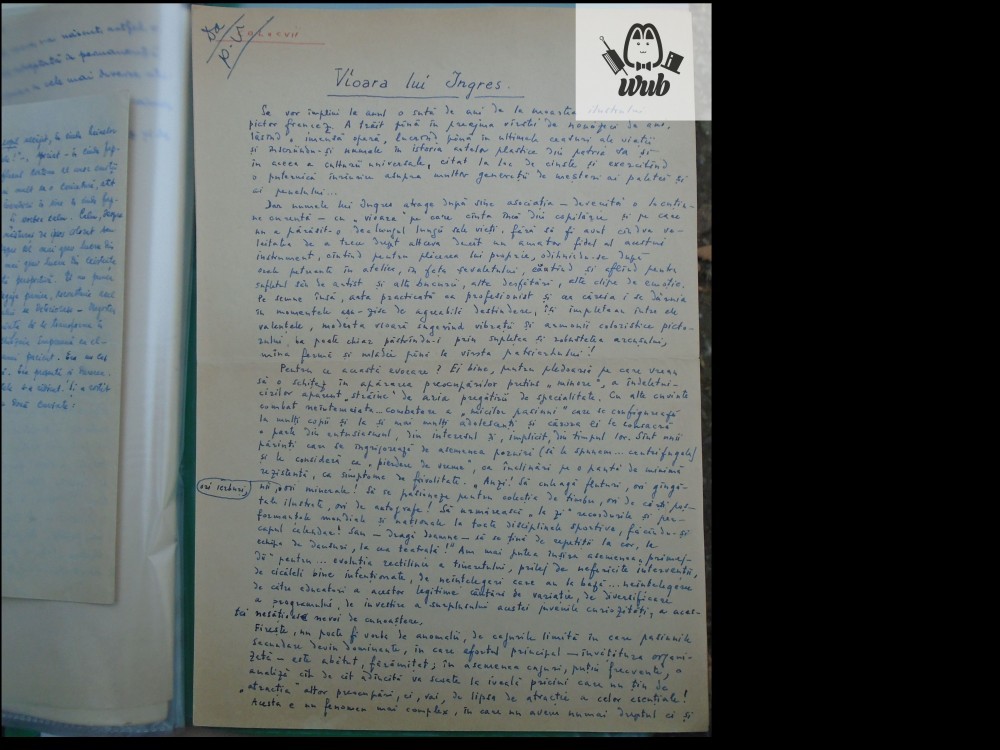 Da
p. 5
Vioara lui Ingres.
Se vor împlini la anul o sută de ani de la moartea ilustrului
pictor francez. A trăit până în preajma vîrstei de nouăzeci de ani,
lăsînd o imensă operă, lucrînd până în ultimele ceasuri ale vieții
și înscriindu-și numele în istoria artelor plastice din patria sa și
în aceea a culturii universale, citat la loc de cinste și exercitînd
o puternică înrîurire asupra multor generații de meșteri ai paletei și
ai penelului...
Dar numele lui Ingres atrage după sine asociația - devenită o locuțiu-
ne curentă - cu „vioara" pe care cînta încă din copilărie și pe care
nu a părăsit-o de-a lungul lungii sale vieți, fără să fi avut cîndva ve-
leitatea de a trece drept altceva decît un amator fidel al acestui
instrument, cîntînd pentru plăcerea lui proprie, odihnindu-se după
orele petrecute în atelier, în fața șevaletului, căutînd și aflînd pentru
sufletul său de artist și alte bucurii, alte desfătări, alte clipe de emoție.
Pe semne însă, arta practicată ca profesionist și cea căreia i se dăruia
în momentele așa-zise de agreabilă destindere, își împleteau între ele
valențele, modesta vioară sugerînd vibrații și armonii coloristice picto-
rului, ba poate chiar păstrîndu-i prin suplețea și robustețea arcușului,
mîna fermă și mlădie până la vîrsta patriarhului!
Pentru ce această evocare? Ei bine, pentru pledoaria pe care vreau
să o schițez în apărarea preocupărilor pretins „minore", a îndeletni-
cirilor aparent „străine" de aria pregătirii de specialitate. Cu alte cuvinte
combat neîntemeiata... combatere a „micilor pasiuni" care se configurează
la mulți copii și la și mai mulți adolescenți și cărora ei le consacră
o parte din entuziasmul, din interesul și, implicit, din timpul lor. Sînt unii
părinți care se îngrijorează de asemenea porniri (să le spunem... centrifugale)
și le consideră ca „pierdere de vreme", ca înclinări pe o pantă de minimă
rezistență, ca simptome de frivolitate. „Auzi! Să culeagă fluturi, ori gîngă-
ori ierburi,
nii, ori minerale! Să se pasioneze pentru colecția de timbre, ori de cărți poș-
tale ilustrate, ori de autografe! Să urmărească „la zi" recordurile și per-
formanțele mondiale și naționale la toate disciplinele sportive, făcîndu-și
capul calendar! Sau - dragă doamne - să se țină de repetiții la cor, la
echipa de dansuri, la cea teatrală!" Am mai putea înșira asemenea „primej-
dii" pentru... evoluția rectilinie a tineretului, prilej de nefericite intervenții,
de cicăleli bine intenționate, de neînțelegeri care au la bază... neînțelegerea
de către educatori a acestor legitime căutări de variație, de diversificare
a programului, de investire a surplusului acestei juvenile curiozități, a aces-
tei nesățioase nevoi de cunoaștere.
Firește, nu poate fi vorba de anomalii, de cazurile limită în care pasiunile
secundare devin dominante, în care efortul principal - învățătura organi-
zată - este abătut, fărâmițat; în asemenea cazuri, puțin frecvente, o
analiză cît de cît adîncită va scoate la iveală pricini care nu țin de
„atracția" altor preocupări, ci, vai, de lipsa de atracție a celor esențiale!
Acesta e un fenomen mai complex, în care nu avem numai dreptul ci și
wub